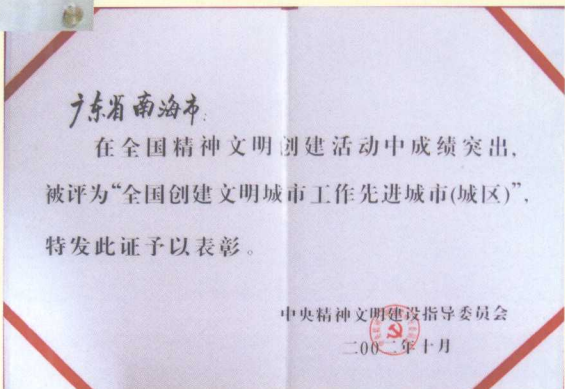 广东省南海市:
在全国精神文明创建活动中成绩突出,
被评为“全国创建文明城市工作先进城市(城区)”,
特发此证予以表彰。
中央精神文明建设指导委员会
二00二年十月